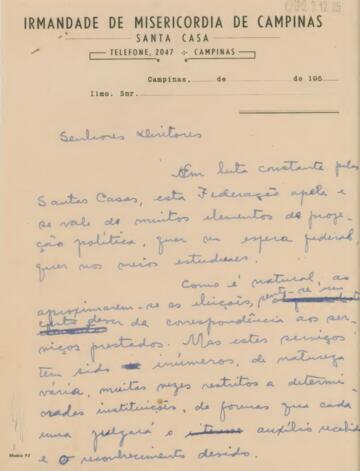 IRMANDADE DE MISERICORDIA DE CAMPINAS
SANTA CASA
TELEFONE, 2047 CAMPINAS
Campinas, de de 196
Ilmo. Snr.
Senhores Diretores
Em luta constante pelas
Santas Casas, esta Federação apela e
se vale de muitos elementos de proje-
ção política, quer na esfera federal
quer nos meios estaduais.
Como é natural, ao
aproximarem-se as eleições, sente-se um
certo dever da correspondência aos ser-
viços prestados. Mas estes serviços
tem sido inúmeros, de natureza
vária, muitas vezes restritos a determi
nadas instituições, de formas que cada
uma julgará o auxílio recebido
e o reconhecimento devido.